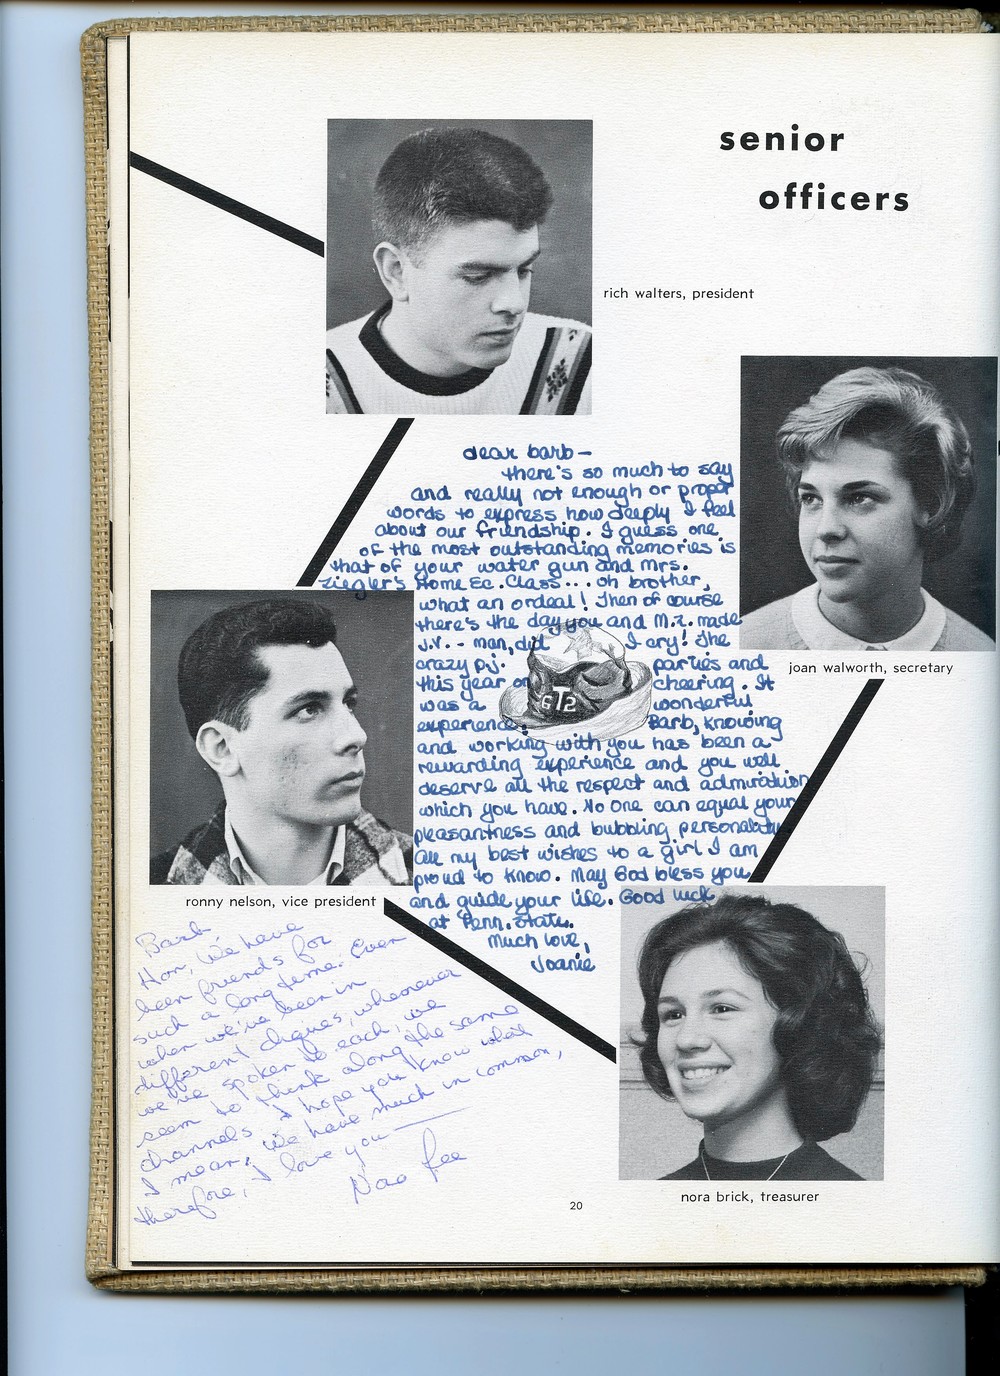 senior
officers
rich walters, president
dear barb—
there's so much to say
and really not enough or proper
words to express how deeply I feel
about our friendship. I guess one
of the most outstanding memories is
that of your water gun and Mrs.
Ziegler's Home Ec. Class... oh brother,
what an ordeal! Then of course
there's the day you and M.Z. made
J.V. - man, did I cry! The
crazy p.j. parties and
this year on cheering. It
was a wonderful
experience. Barb, knowing
and working with you has been a
rewarding experience and you well
deserve all the respect and admiration
which you have. No one can equal your
pleasantness and bubbling personality.
All my best wishes to a girl I am
proud to know. May God bless you
and guide your life. Good luck
at Penn. State.
Much love,
Joanie
GT2
joan walworth, secretary
ronny nelson, vice president
Barb
Hon, We have
been friends for
such a long time. Even
when we've been in
different cliques, whenever
we've spoken to each, we
seem to think along the same
channels. I hope you know what
I mean; We have much in common,
therefore, I love you—
nora brick, treasurer
20